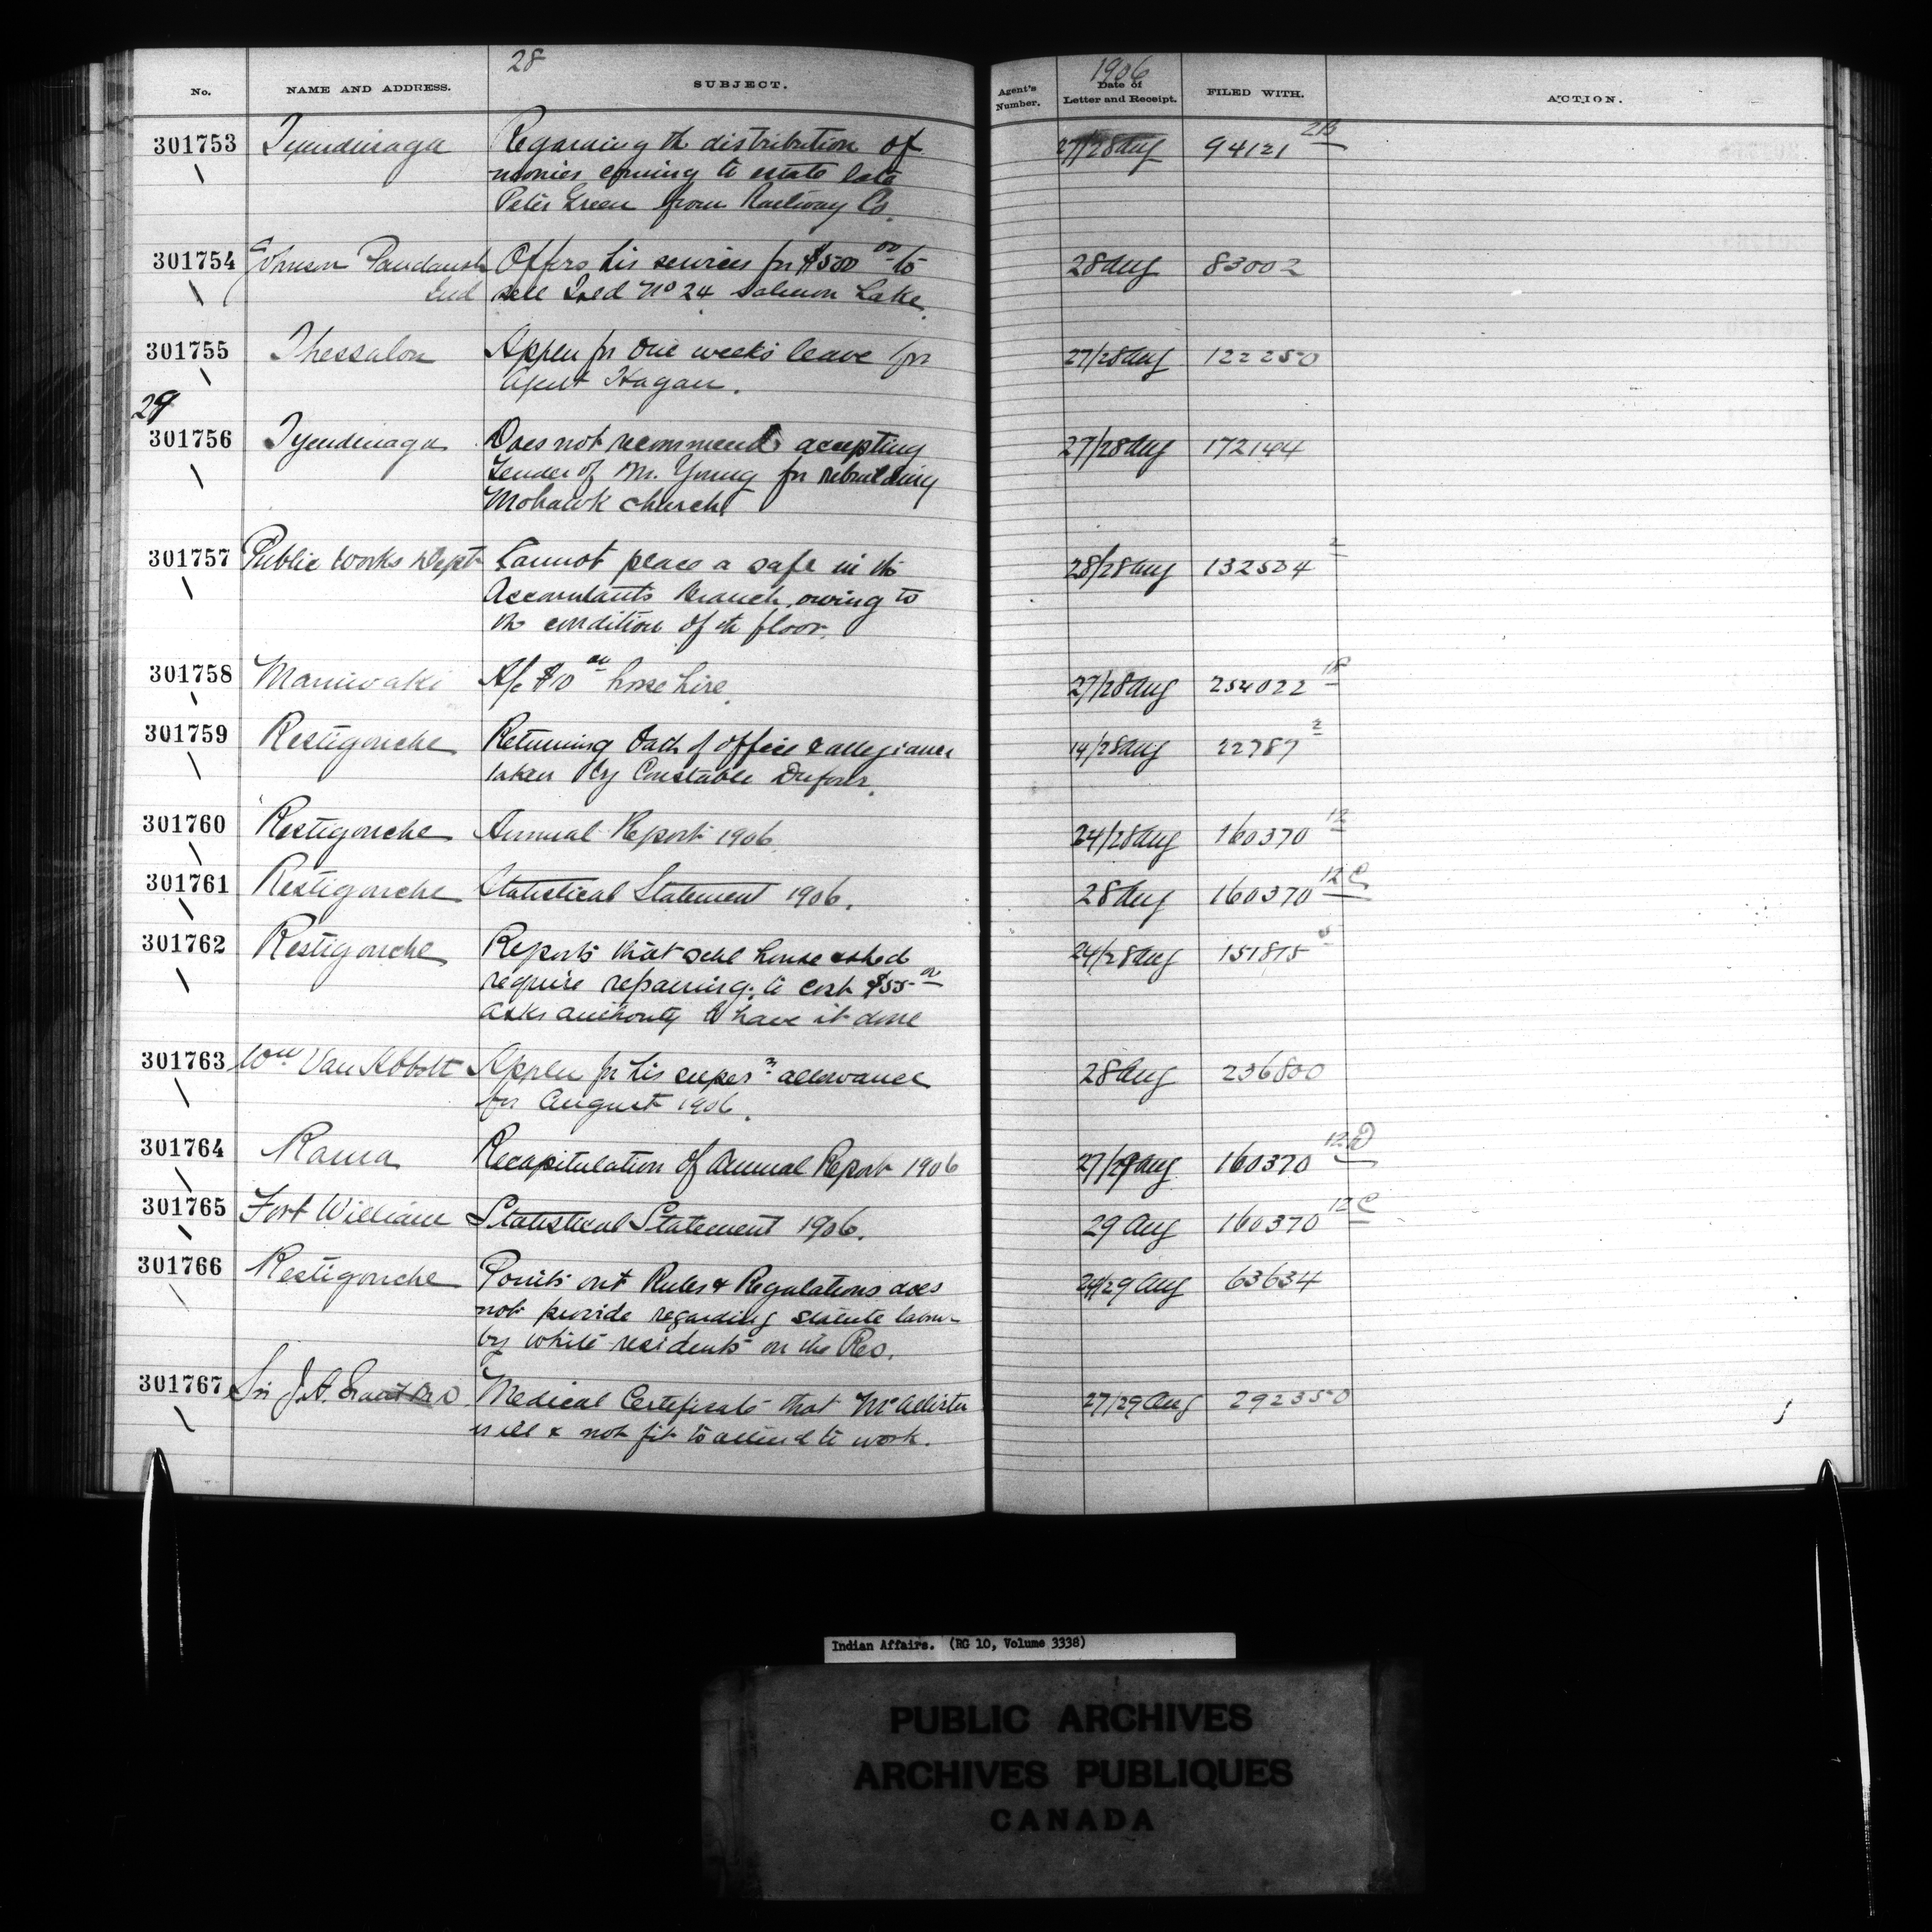 28
1906
No. NAME AND ADDRESS. SUBJECT. Agent's Number. Date of Letter and Receipt. FILED WITH. ACTION.
301753 Tyendinaga Regarding th distribution of 27/28 Aug 94121 2B
monies coming to estate late
Peter Green from Railway Co.
301754 Johnson Paudaush Offers his services for $500 00 to 28 Aug 83002
Ind sell Isld No 24 Salmon Lake.
301755 Thessalon Appln for one weeks leave for 27/28 Aug 122250
Agent Hagan.
29
301756 Tyendinaga Does not recommend accepting 27/28 Aug 172144
Tender of Mr. Young for rebuilding
Mohawk church
301757 Public Works Dept Cannot place a safe in th 28/28 Aug 132534 2
Accountants Branch, owing to
th condition of th floor.
301758 Maniwaki A/c $10 00 horse hire. 27/28 Aug 254022
301759 Restigouche Returning Oath of office & allegiance 14/28 Aug 22787 2
taken by Constable Dufour.
301760 Restigouche Annual Report 1906. 24/28 Aug 160370 12
301761 Restigouche Statistical Statement 1906. 28 Aug 160370 12 C
301762 Restigouche Reports that schl house & shed 24/28 Aug 151815
require repairing, to cost $55 00
asks authority to have it done
301763 Wm Van Abbott Appln for his super n allowance 28 Aug 236800
for August 1906.
301764 Rama Recapitulation of Annual Report 1906 27/29 Aug 160370 12 D
301765 Fort William Statistical Statement 1906. 29 Aug 160370 12 C
301766 Restigouche Points out Rules & Regulations does 24/29 Aug 63634
not provide regarding statute labour
by white residents on the Res.
301767 Sir J.A. Grant M.D. Medical Certificate that McAllister 27/29 Aug 292350
is ill & not fit to attend to work.
Indian Affairs. (RG 10, Volume 3338)
PUBLIC ARCHIVES
ARCHIVES PUBLIQUES
CANADA